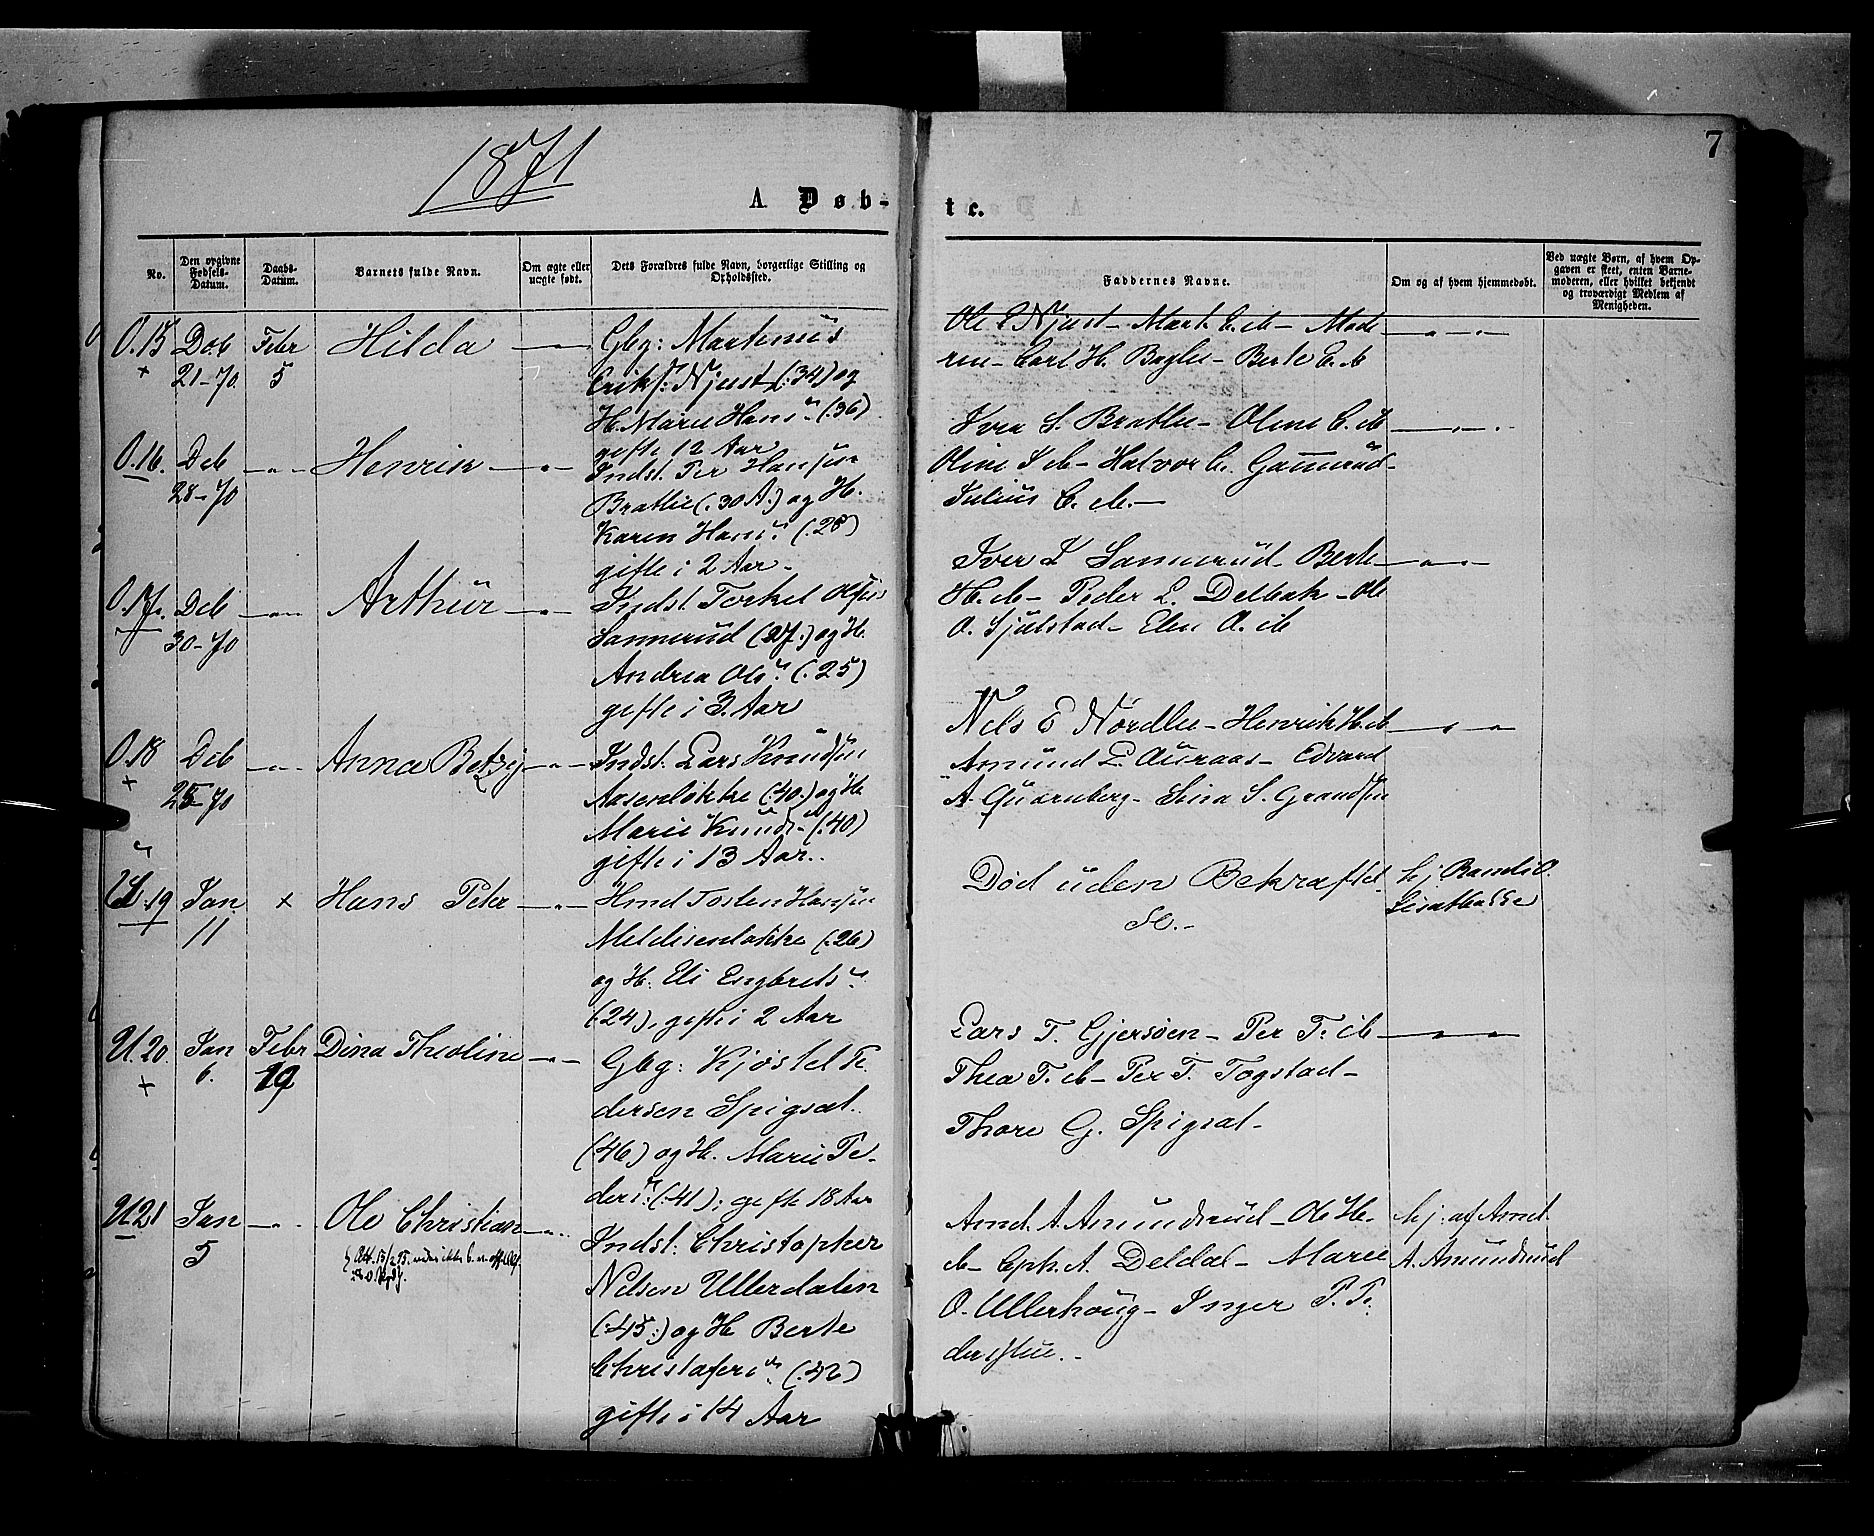 1871
7
A Døb-
te.
No.
Den opgivne Fødsels-Datum.
Daabs-Datum.
Barnets fulde Navn.
Om ægte eller uægte født.
Dets Forældres fulde Navn, borgerlige Stilling og Opholdssted.
Faddernes Navne.
Om og af hvem hjemmedøbt.
Ved uægte Børn, af hvem Opgaven er skeet, enten Barnemoderen, eller hvilket bekjendt og troværdigt Medlem af Menigheden.
O. 15 Deb 21-70. Febr 5 Hilda
Gbg: Martinus
Eriks: Njust (:34) og
H. Marie Hans (:36)
gifte 12 Aar
Ole E Njust - Mart. E. ib - Mode
ren - Carl H. Bøglie - Berte E. ib
O. 16. Deb 28-70 Henrik
Indst. Per Hansen
Bratlie (:30 A:) og H.
Karen Hans: (:28)
gifte i 2 Aar -
Iver S. Bratlie - Oline C. ib
Oline S ib - Halvor Gammerud -
Julius C. ib. -
O. 17. Deb 30-70 Arthur
Indst Torkel Olsen
Sannerud (27:) og H.
Andrea Ols: (:25)
gifte i 3. Aar
Iver L Sannerud - Berte
H. ib - Peder L. Delbæk - Ole
O. Sjulstad - Elen O. ib
O. 18 Deb 25-70 Anna Betzy
Indst: Lars Knudsen
Aasenløkke (:40.) og H.
Marie Knuds- (:40)
gifte i 13 Aar..
Nels E Nordlie - Henrik H. ib
Amund L. Auraas - Edvard
A. Quernberg - Lina S. Grandsen
U. 19 Jan 11 × Hans Peter
Hmd Tosten Hansen
(:26)
og H. Eli Engbrets
(24), gifte i 2 Aar
Død uden Bekræftel
se. -
hj Randi O.
U. 20 Jan 6. Febr 19 Dina Theoline
Gbg: Kjøstel Pe
dersen Spigsæt.
(46) og H. Marie Pe-
ders: (:41); gifte 18 Aar
Lars T. Gjersøen - Per T. ib
Thea T. ib - Per T. Togstad -
Thore G. Spigsæt -
U. 21 Jan 5 Ole Christian
Indst: Christopher
Nelsen Ullerdalen
(:45:) og H Berte
Christofers (:42)
gifte i 14 Aar
Arnd. A. Amundsrud - Ole H.
ib - Cph. A. Deldal - Marie
O. Ullerhoug - Inger P. Pe
derstue. -
hj: af Arnd.
A. Amundsrud